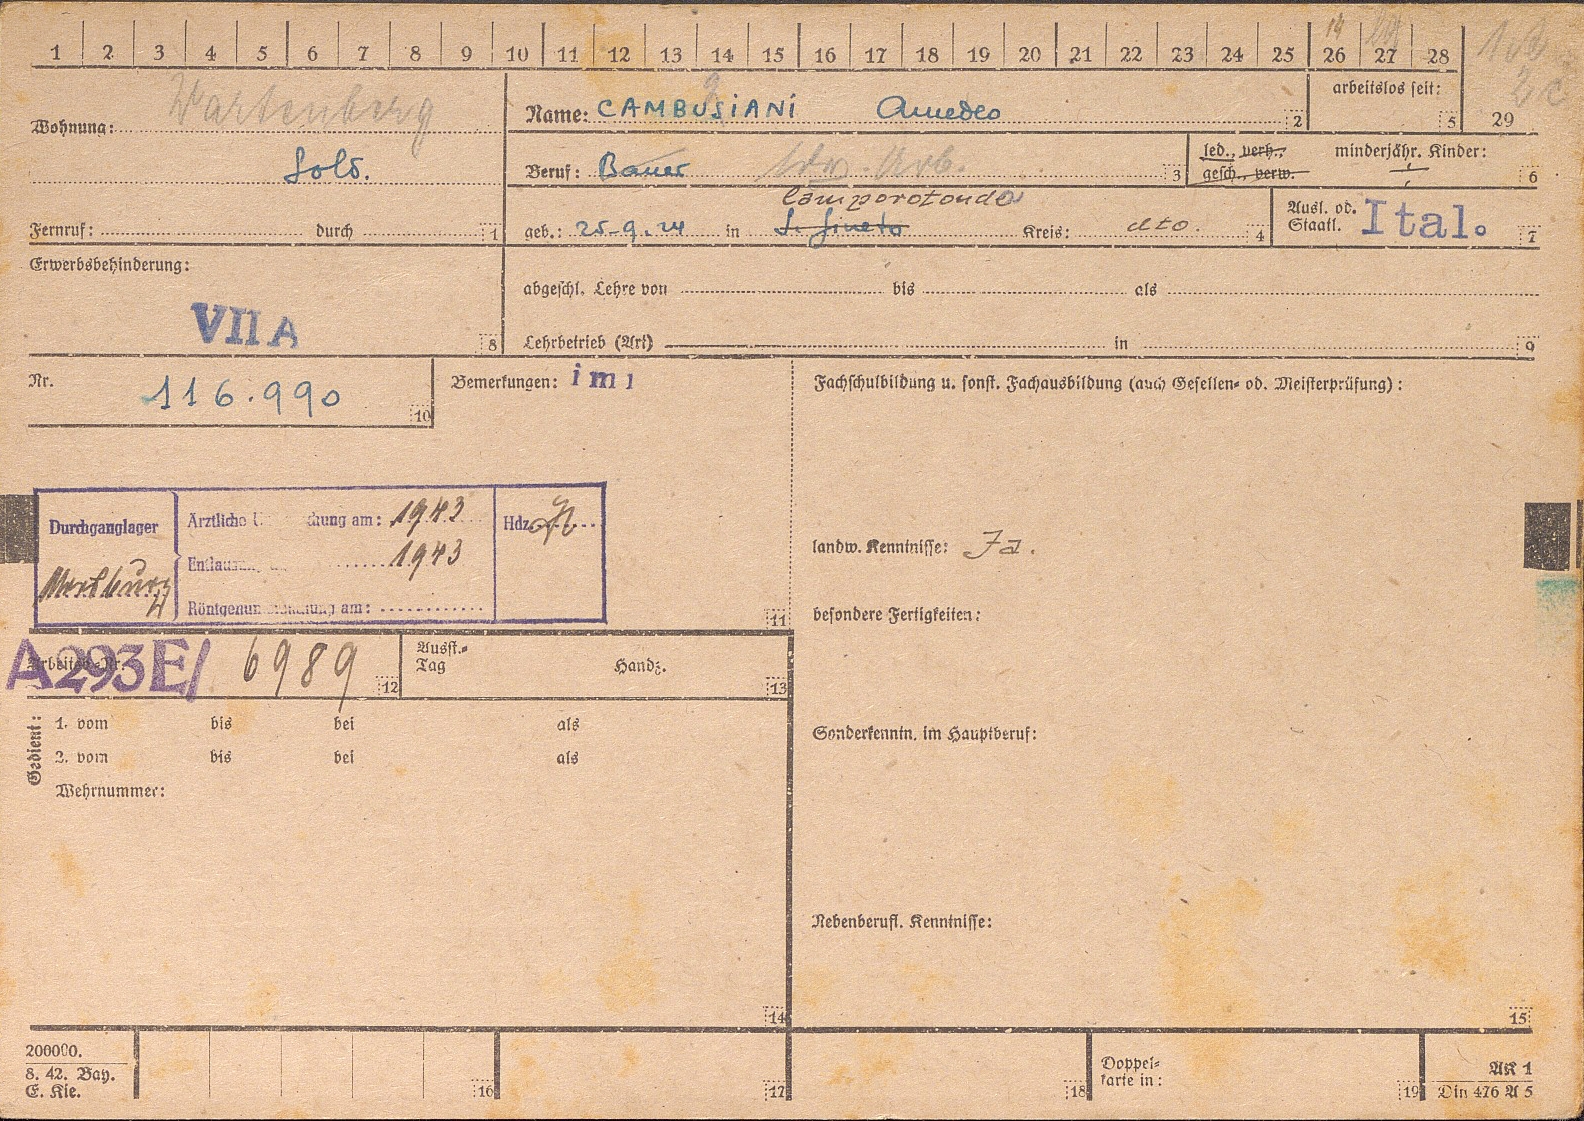 1 2 3 4 5 6 7 8 9 10 11 12 13 14 15 16 17 18 19 20 21 22 23 24 25 26 27 28
14
29
arbeitslos seit: 5
Wohnung: Wartenberg
Sold.
Fernruf: durch 1
Name: CAMBUSIANI Amedeo 2
Beruf: Bauer ldw. Arb. 3
led., verh., gesch., verw.
minderjähr. Kinder: 6
Camporotondo
geb.: 25-9.24 in Kreis: dto. 4
Ausl. od. Staatl. Ital. 7
Erwerbsbehinderung:
VII A 8
abgeschl. Lehre von bis als
Lehrbetrieb (Art) in 9
Nr. 116.990 10
Bemerkungen:
Fachschulbildung u. sonst. Fachausbildung (auch Gesellen- od. Meisterprüfung):
Durchganglager
Ärztliche am: 1943
Hdz.
1943
am:
11
landw. Kenntnisse: Ja.
besondere Fertigkeiten:
Arbeitsb.-Nr.
A293E/ 6989 12
Ausst.-Tag Handz. 13
Gedient:
1. vom bis bei als
2. vom bis bei als
Wehrnummer:
Sonderkenntn. im Hauptberuf:
Nebenberufl. Kenntnisse:
14
15
200000.
8. 42. Bay.
E. Kie.
16
17
18
Doppel-
karte in:
19
AK 1
Din 476 A 5